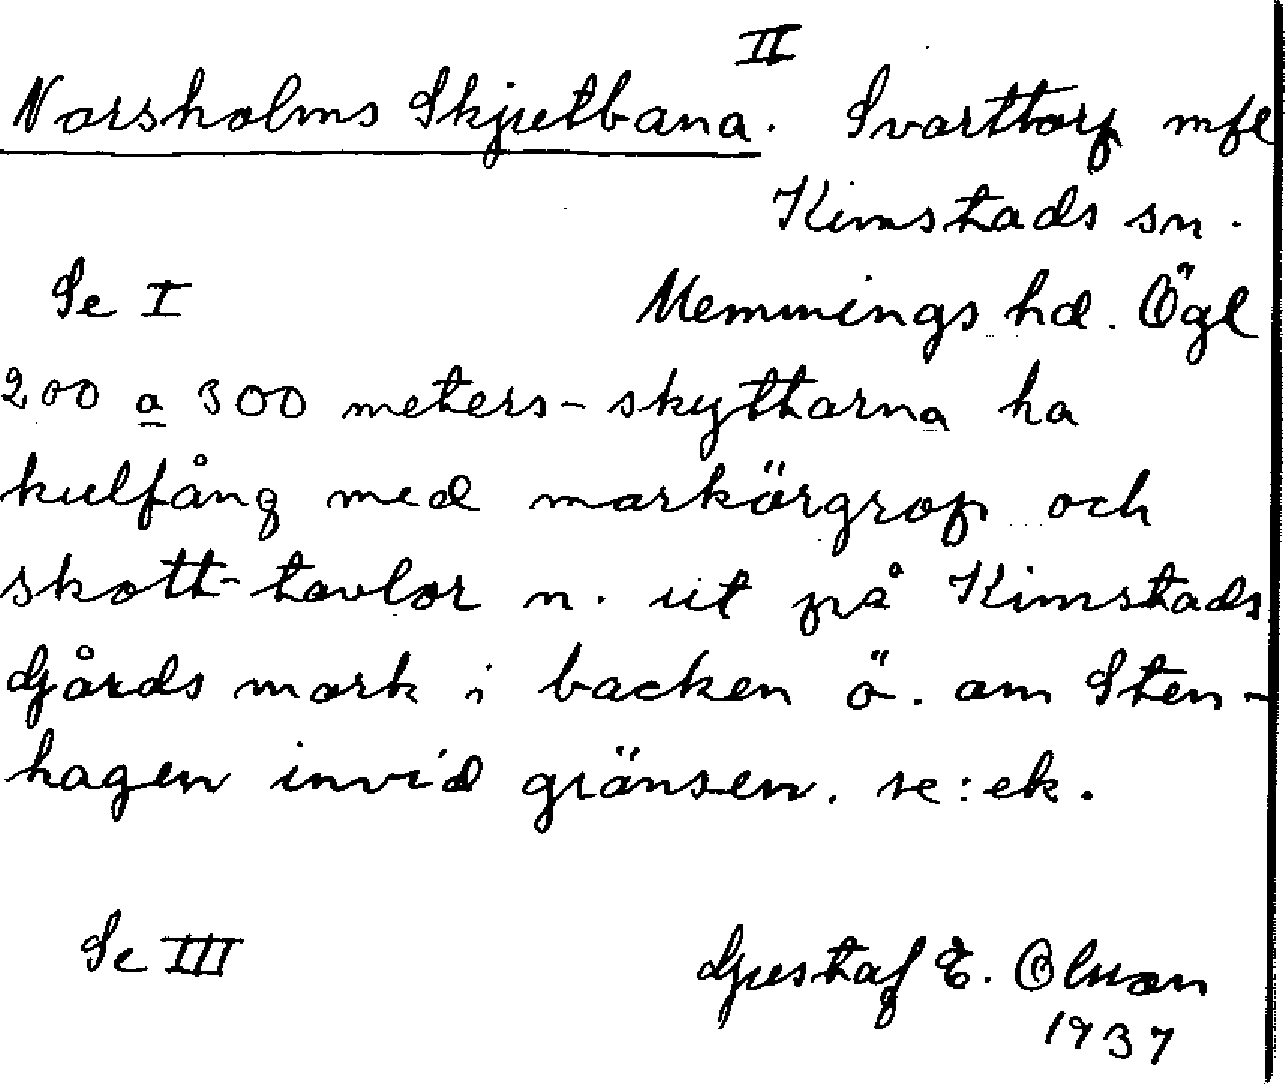 II
Norsholms Skjutbana. Svarttorp mfl
Kimstads sn.
Se I Memmings hd. Ögl
200 a 300 meters-skyttarna ha
kulfång med markörgrop och
skott-tavlor n. ut på Kimstads
Gårds mark i backen ö. om Sten-
hagen invid gränsen. se: ek.
Se III Gustaf E. Olsson
1937